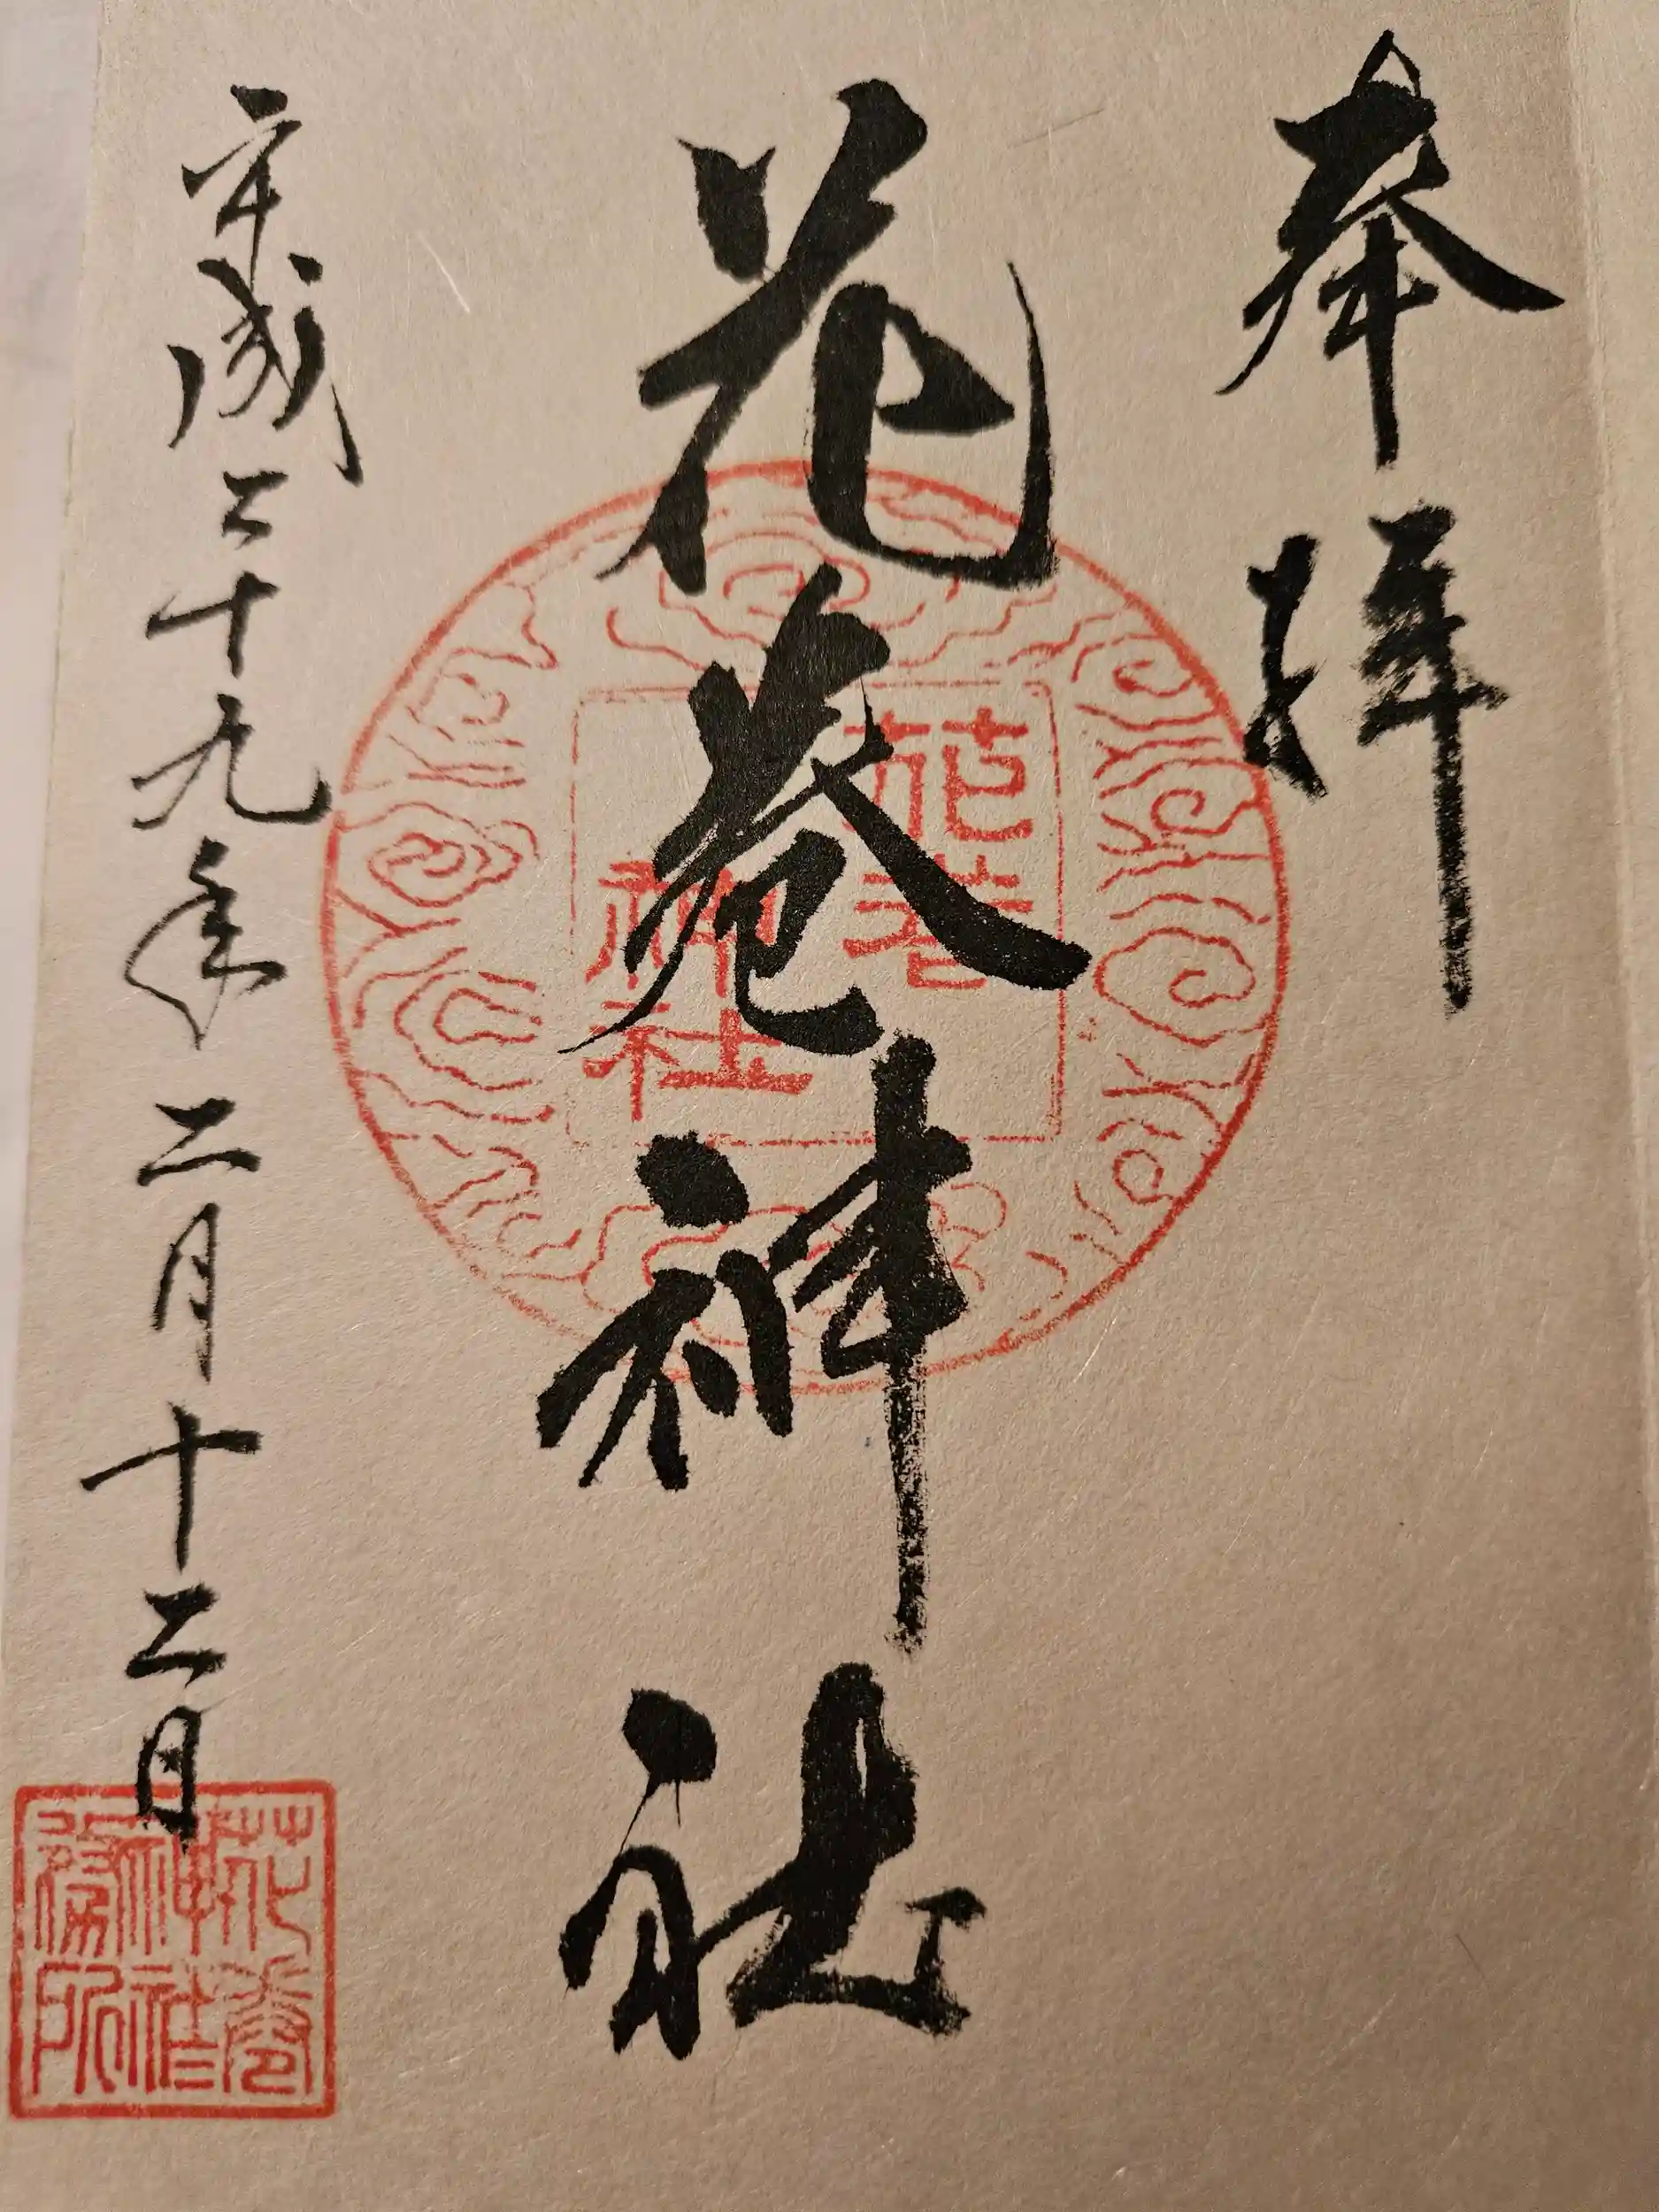 奉拝
花巻神社
平成二十九年二月十二日
花巻
神社
花巻
神社
務所